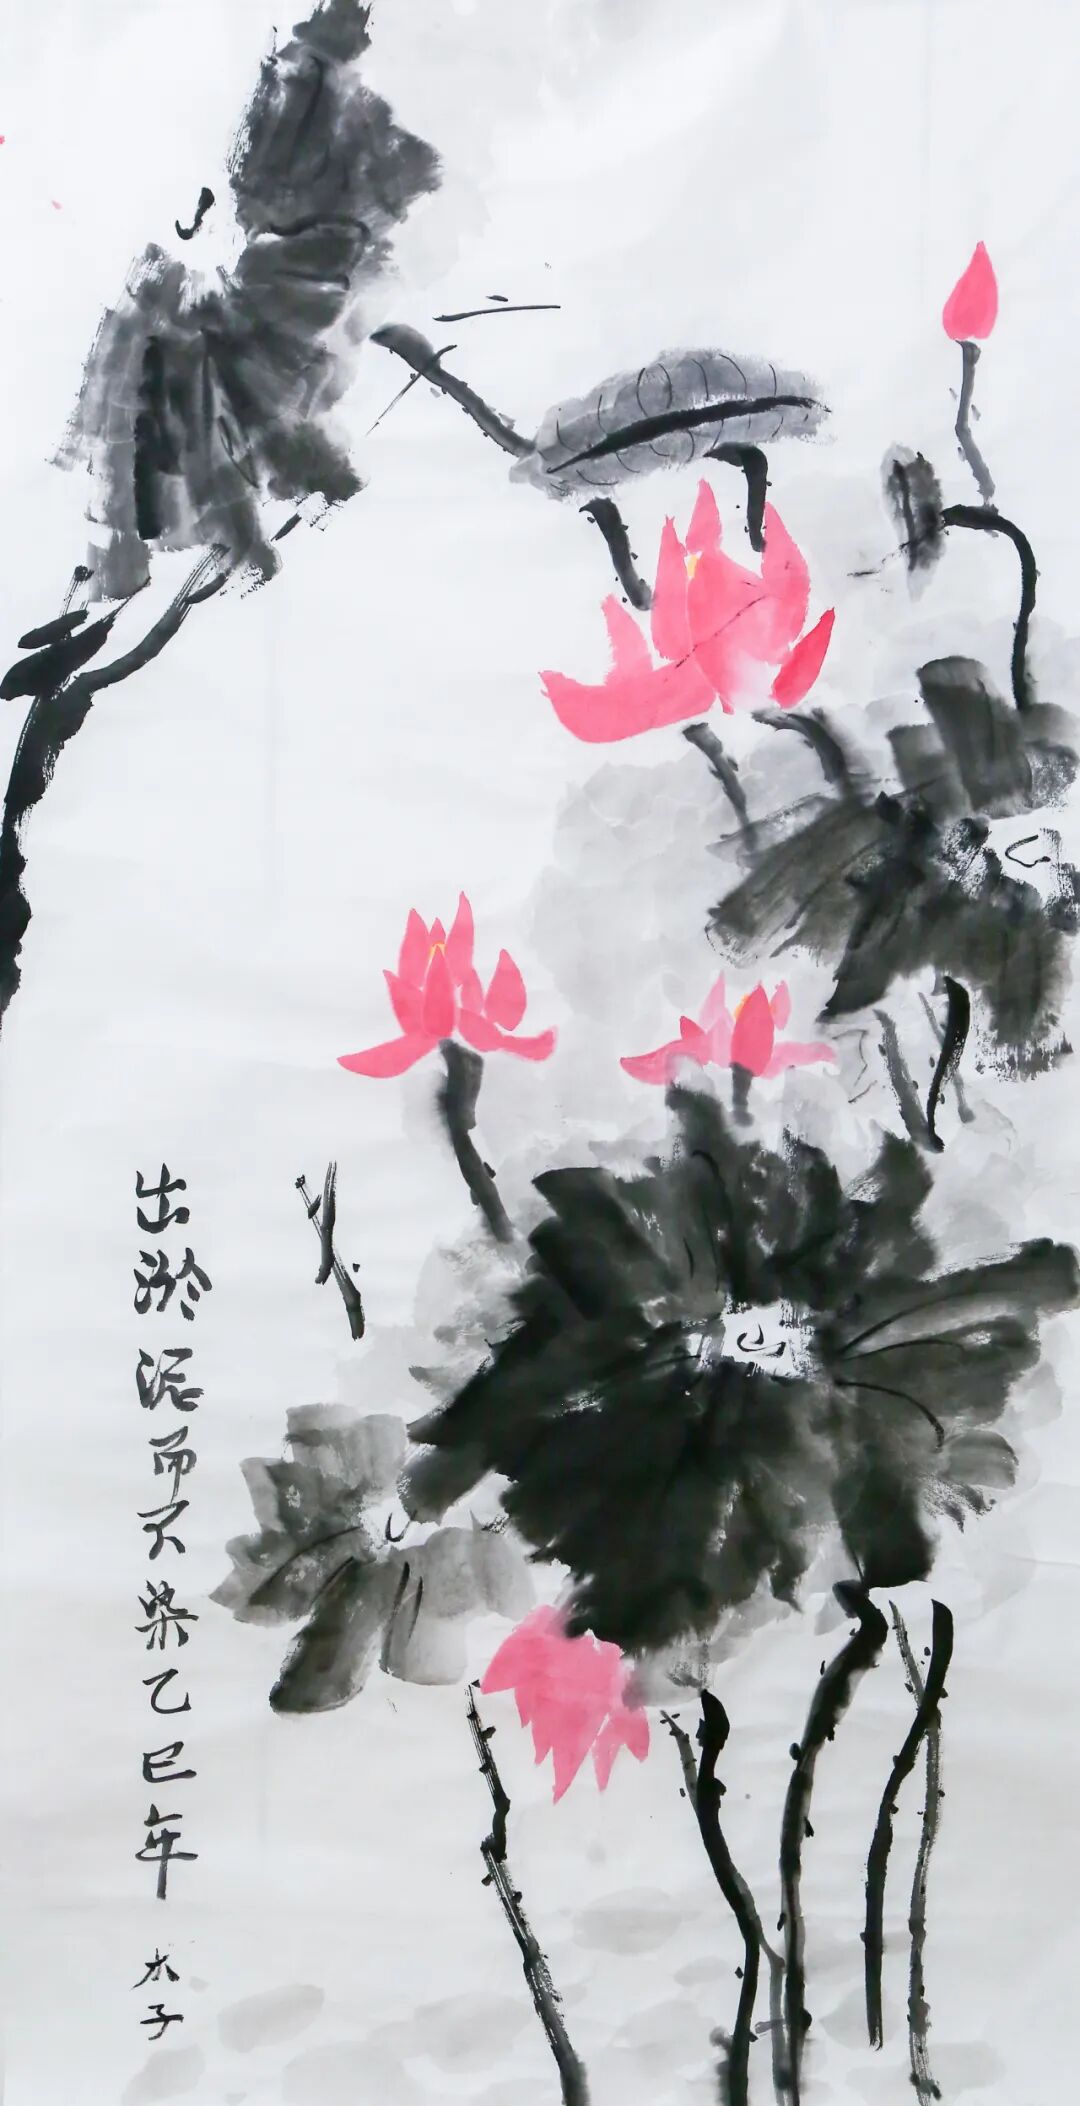 出淤泥而不染乙巳年
木子